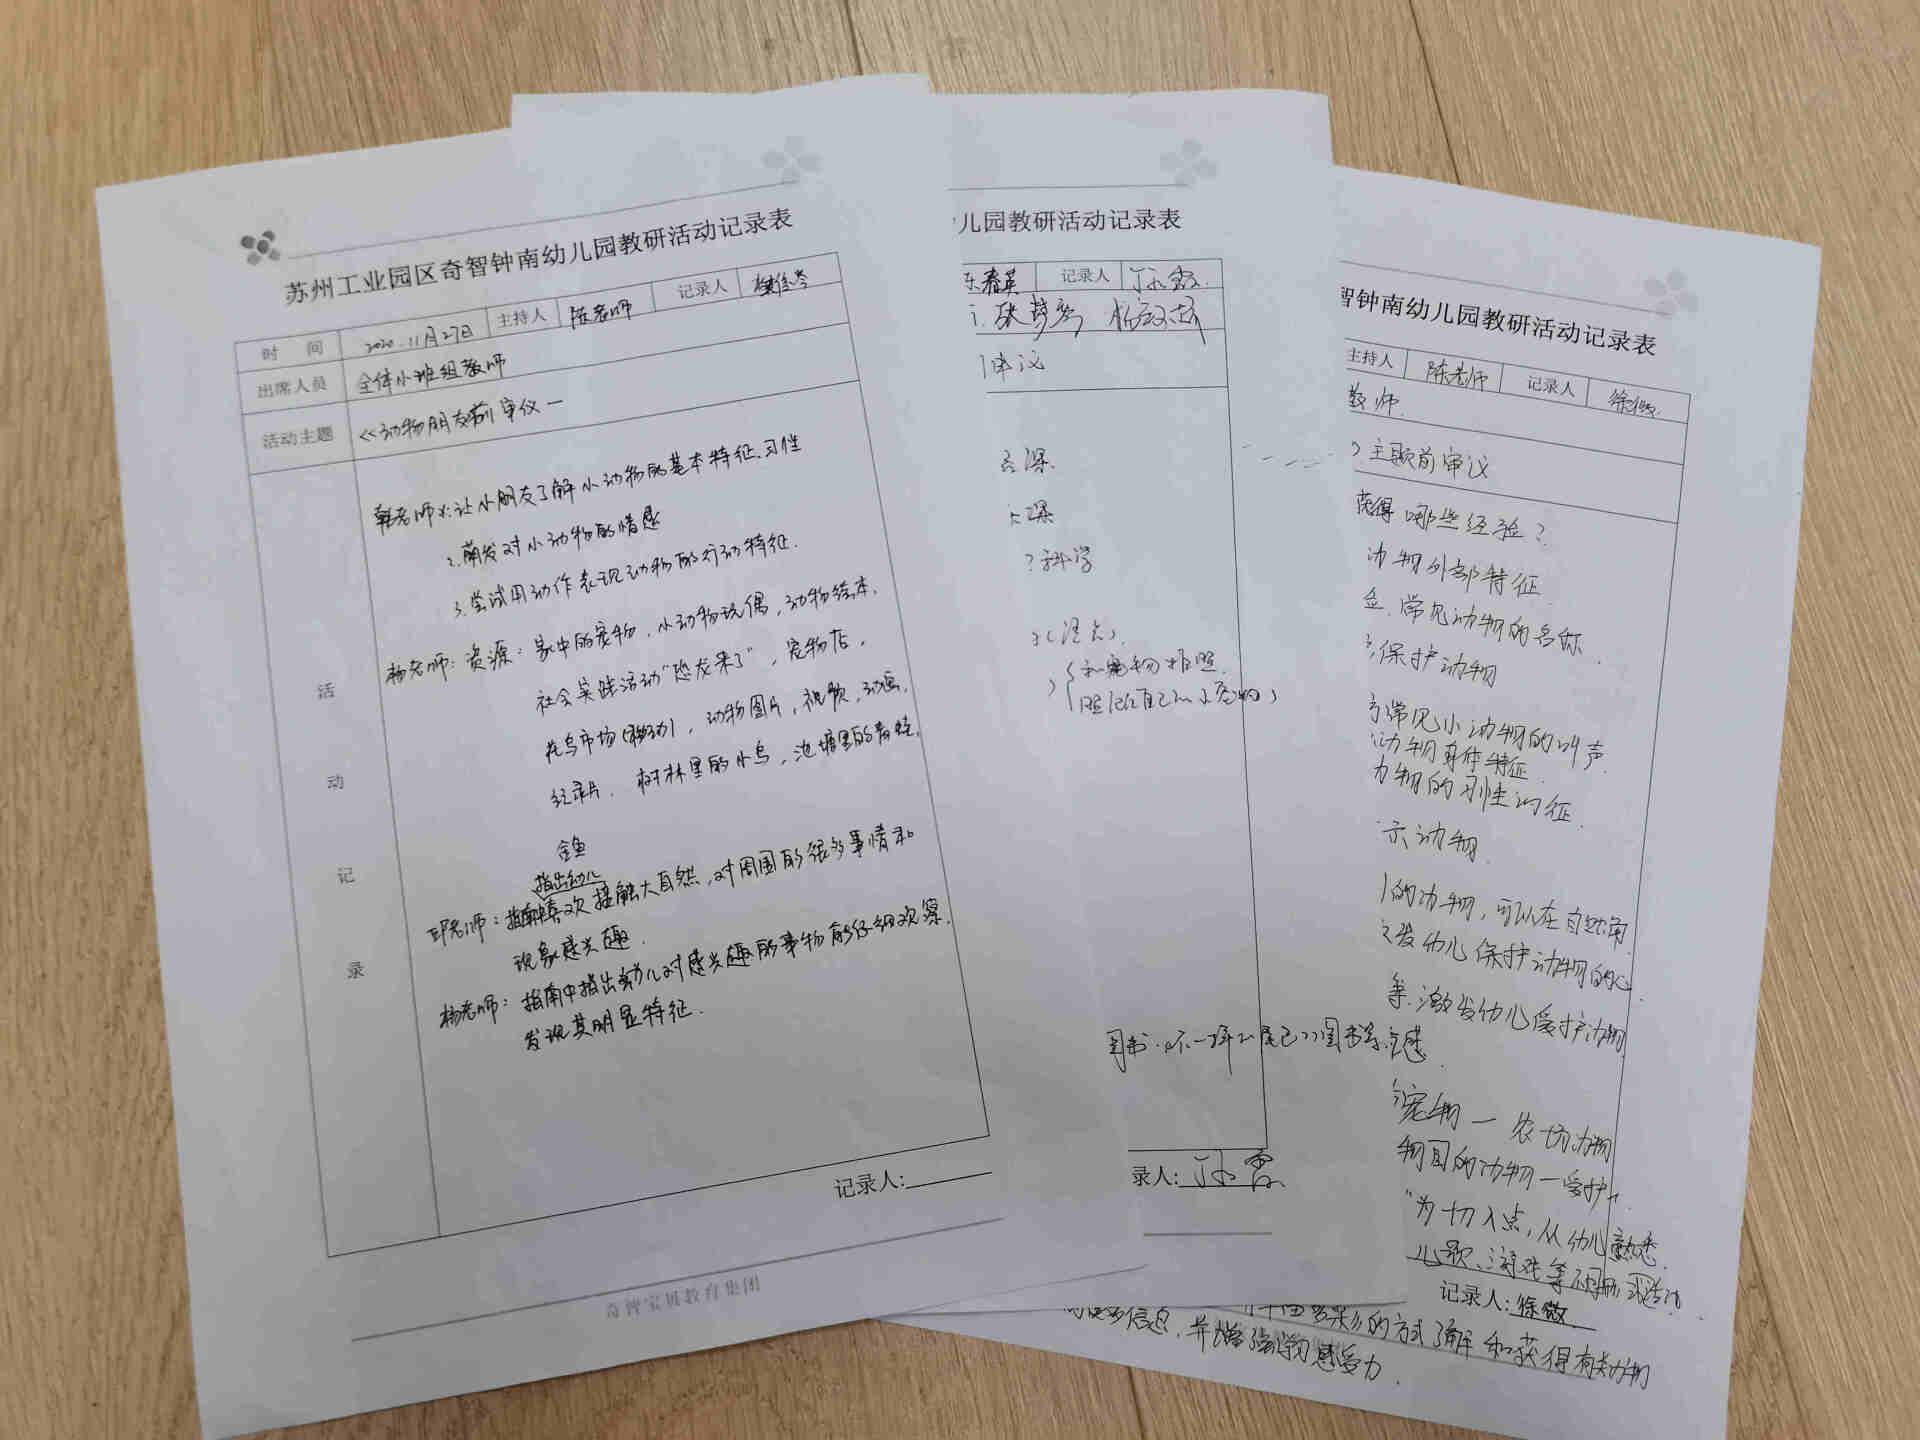 苏州工业园区奇智钟南幼儿园教研活动记录表
时 间 2020.11月27日 主持人 陈老师 记录人
出席人员 全体小班组教师
活动主题 《动物朋友前审议一
活动记录
韩老师:1.让小朋友了解小动物的基本特征.习性
2.萌发对小动物的情感
3.尝试用动作表现动物的行动特征.
杨老师:资源:家中的宠物,小动物玩偶,动物绘本.
社会实践活动"恐龙来了",宠物店,
花鸟市场(移动),动物图片,视频,动画.
纪录片.树林里的小鸟,池塘里的青蛙.
金鱼
指出幼儿
邱老师:指南喜欢接触大自然,对周围的很多事情和
现象感兴趣.
杨老师:指南中指出幼儿对感兴趣的事物能仔细观察.
发现其明显特征.
记录人:
奇智宝贝教育集团
儿园教研活动记录表
春英 记录人
审议
科学
和宠物拍照.
录人:
智钟南幼儿园教研活动记录表
主持人 陈老师 记录人 徐微
教师.
主题前审议
获得哪些经验?
动物外部特征
常见动物的名称.
保护动物
常见小动物的叫声
动物身体特征.
动物的习性
动物.
的动物,可以在自然角
发幼儿保护动物的心
等.激发幼儿爱护动物
宠物一农场动物
物园的动物一爱护
为切入点,从幼儿熟悉
儿歌、游戏等不同形式活动
记录人:徐微
的方式了解和获得有关动物
信息,并增强学习感受力.